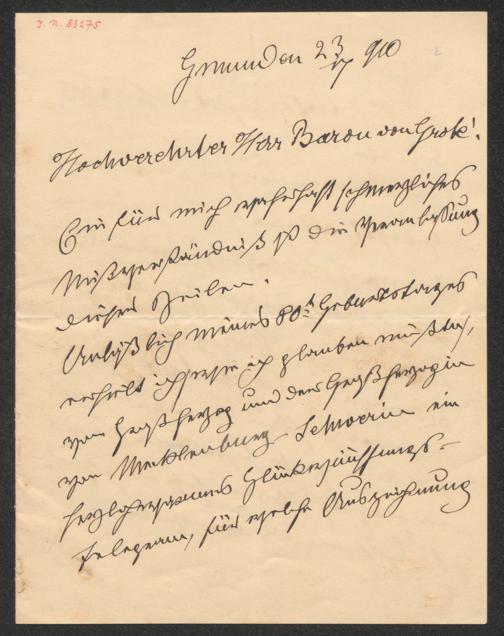 J. N. 83275
Gmunden 23/V 910
Hochverehrter Herr Baron von Grote!
Ein für mich wahrhaft schmerzliches
Mißverständniß ist die Veranlassung
dieser Zeilen.
Anläßlich meines 80t Geburtstages
erhielt ich, wie ich glauben mußte,
vom Großherzog und der Großherzogin
von Mecklenburg-Schwerin ein
Glückwünschungs-
telegram, für welche Auszeichnung